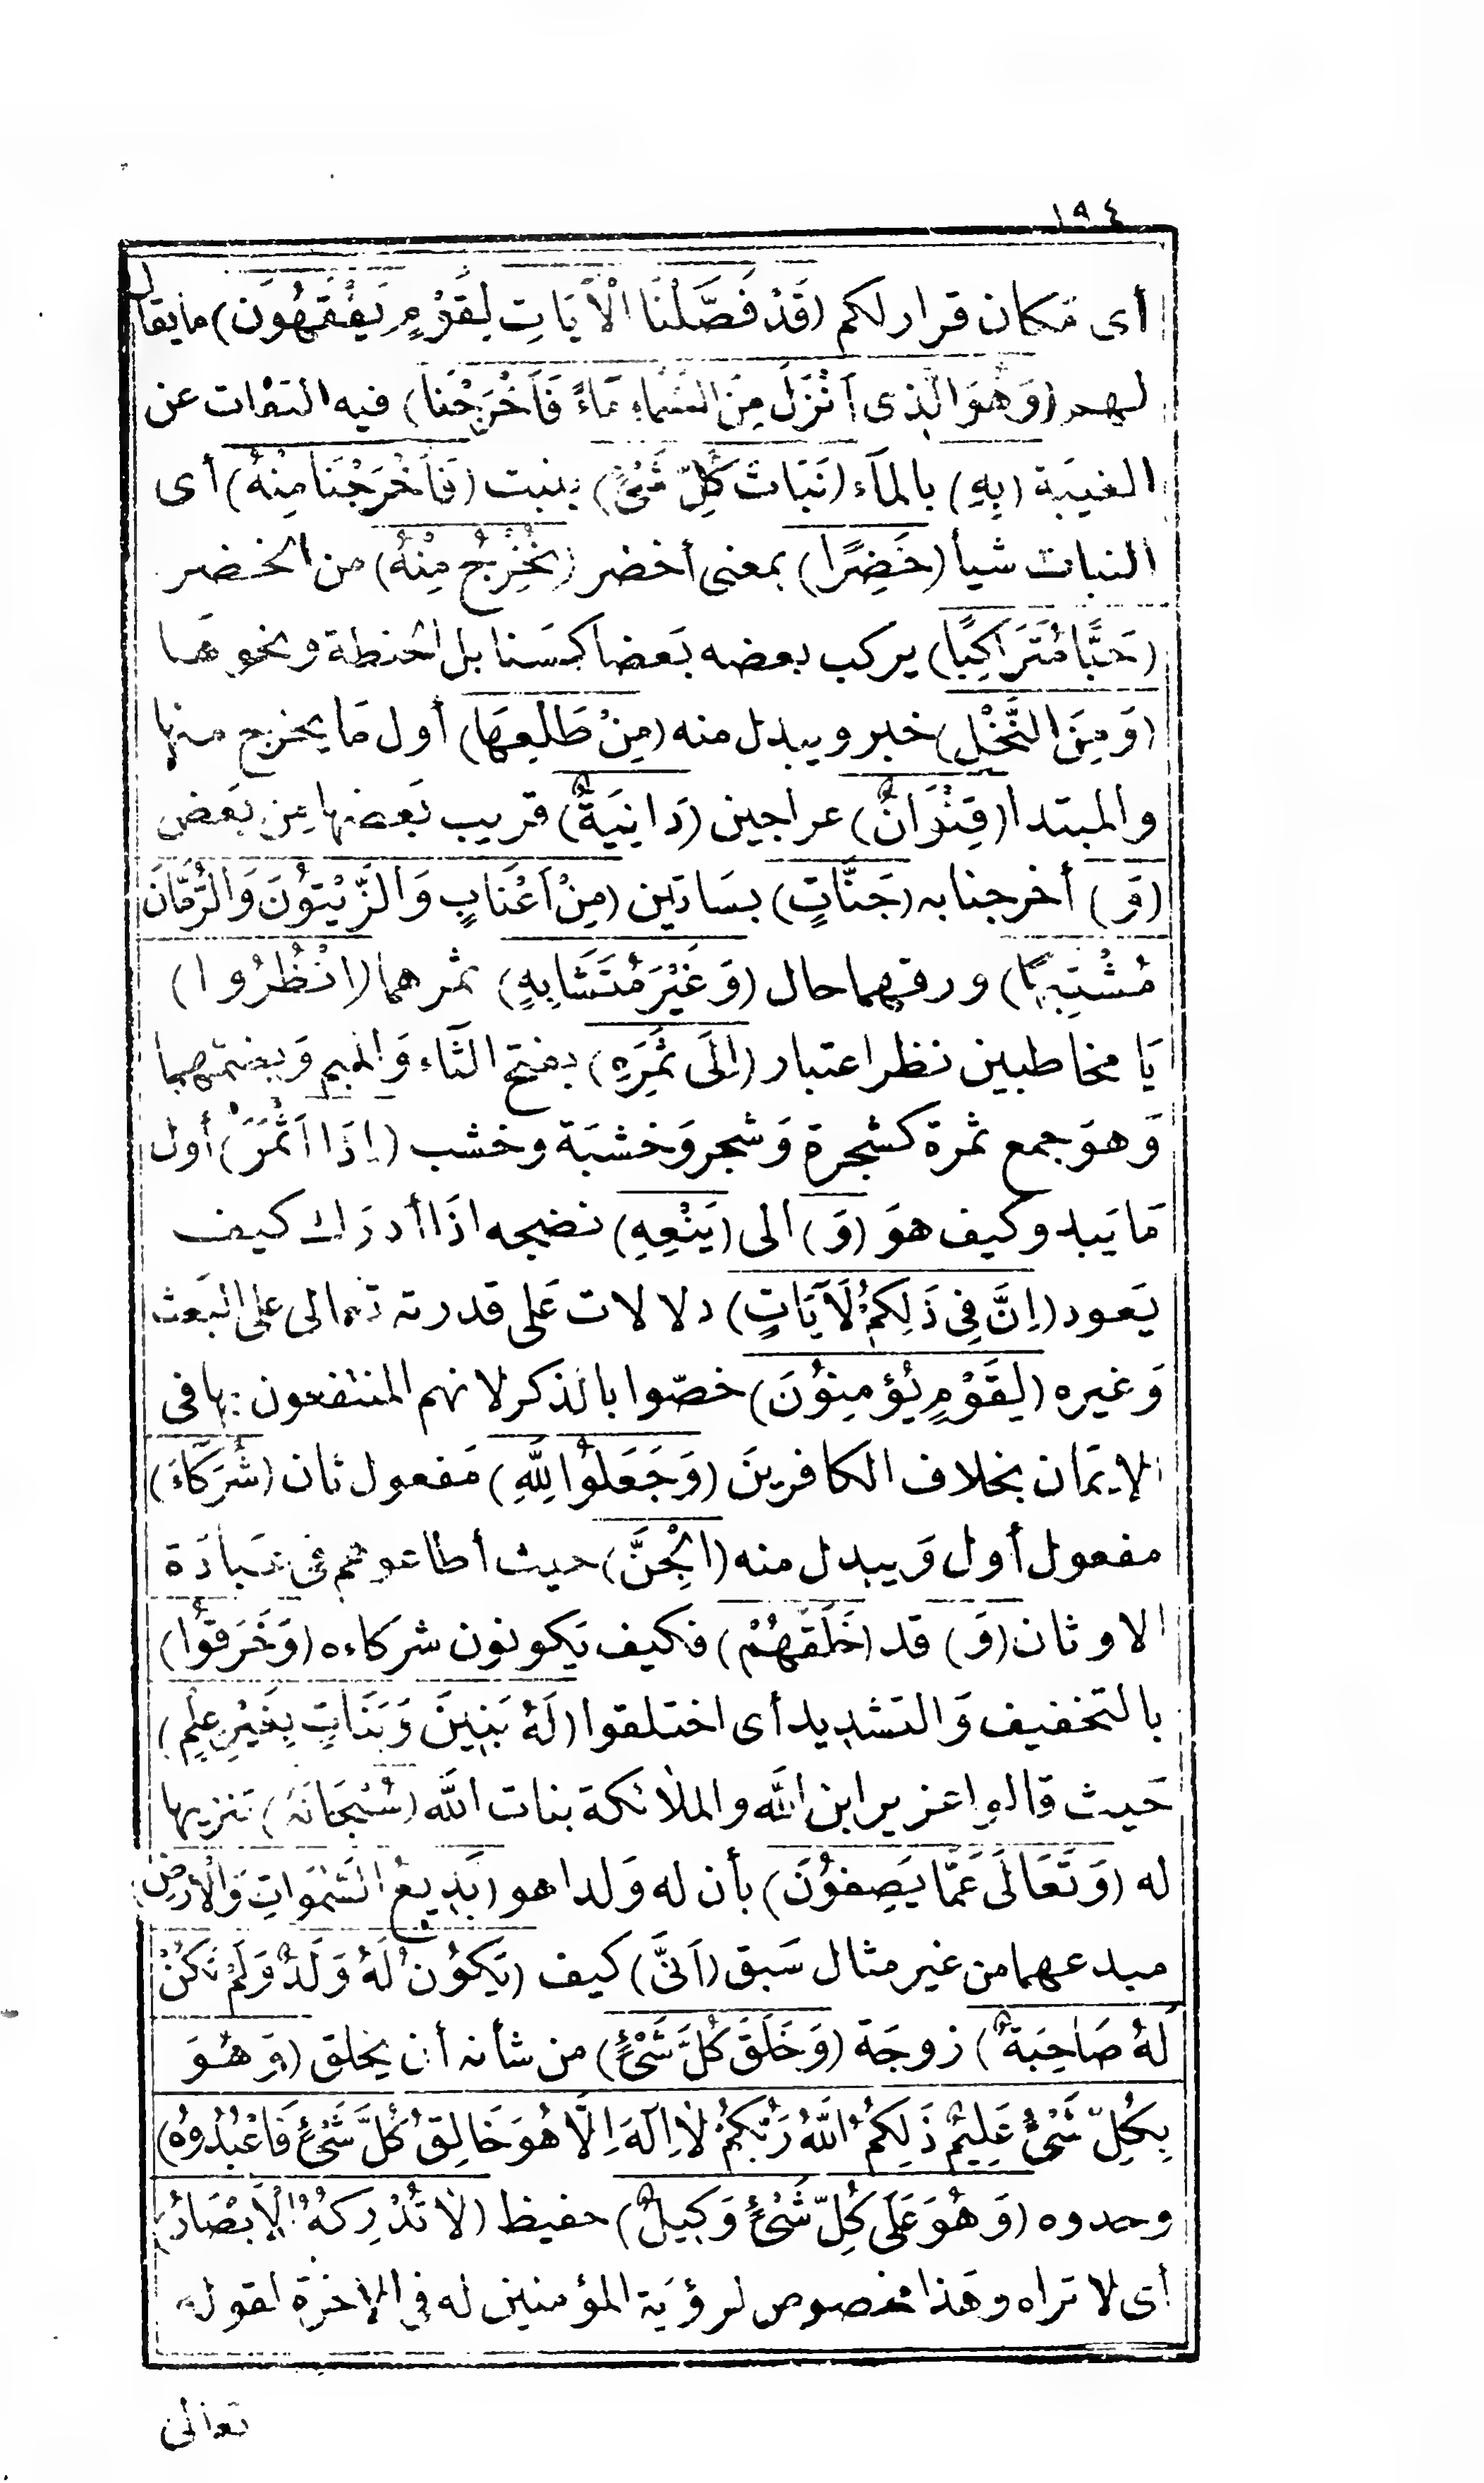 ١٩٤
أى مَكان قرار لكم (قَدْ فَصَّلْنَا الْاَيَاتِ لِقَوْمٍ يَفْقَهُونَ) ما يقال
لهم (وَهُوَ الَّذِى اَنْزَلَ مِنَ السَّمَاءِ مَاءً فَاَخْرَجْنَا) فيه التفات عن
الغيبَة (بِهِ) بالمآء (نَبَاتَ كُلِّ شَىْءٍ) ينبت (فَاَخْرَجْنَا مِنْهُ) أى
النبات شيأ (خَضِرًا) بمعنى أخضر (نُخْرِجُ مِنْهُ) من الخضر
(حَبًّا مُتَرَاكِبًا) يركب بعضه بَعضا كسَنابل الحنطة ونحوهَا
(وَمِنَ النَّخْلِ) خبر ويبدل منه (مِنْ طَلْعِهَا) أول مَا يخرج منها
والمبتدا (قِنْوَانٌ) عراجين (دَانِيَةٌ) قريب بَعضها من بَعض
(وَ) أخرجنا به (جَنَّاتٍ) بسَاتين (مِنْ اَعْنَابٍ وَالزَّيْتُونَ وَالرُّمَّانَ
مُشْتَبِهًا) ورقهما حال (وَغَيْرَ مُتَشَابِهٍ) ثمرهما (انْظُرُوا)
يَا مخاطبين نظر اعتبار (اِلَى ثَمَرِهِ) بفتح الثآء وَالميم وَبضمهما
وَهوَ جمع ثمرة كشجرة وَشجر وَخشبَة وخشب (اِذَا اَثْمَرَ) أول
مَا يَبدو كيف هوَ (وَ) الى (يَنْعِهِ) نضجه اذَا أدرَك كيف
يَعود (اِنَّ فِى ذَلِكُمْ لَآيَاتٍ) دلالات عَلى قدرته تعالى على البَعث
وَغيره (لِقَوْمٍ يُؤْمِنُونَ) خصّوا بالذكر لانهم المنتفعون بها فى
الايمَان بخلاف الكافرينَ (وَجَعَلُوا لِلّٰهِ) مَفعول ثان (شُرَكَاءَ)
مفعول أول وَيبدل منه (الْجِنَّ) حيث أطاعوهم فى عبَادَة
الاوثان (وَ) قد (خَلَقَهُمْ) فكيف يَكونون شركاءه (وَخَرَقُوا)
بالتخفيف وَالتشديد أى اختلقوا (لَهُ بَنِينَ وَبَنَاتٍ بِغَيْرِ عِلْمٍ)
حَيث قالوا عزير ابن الله والملائكة بنات الله (سُبْحَانَهُ) تنزيها
له (وَتَعَالَى عَمَّا يَصِفُونَ) بأن له وَلدا هو (بَدِيعُ السَّمٰوَاتِ وَالْاَرْضِ)
مبدعهما من غير مثال سَبق (اَنَّى) كيف (يَكُونُ لَهُ وَلَدٌ وَلَمْ تَكُنْ
لَهُ صَاحِبَةٌ) زوجَة (وَخَلَقَ كُلَّ شَىْءٍ) من شأنه أن يخلق (وَهُوَ
بِكُلِّ شَىْءٍ عَلِيمٌ ذَلِكُمُ اللّٰهُ رَبُّكُمْ لَا اِلٰهَ اِلَّا هُوَ خَالِقُ كُلِّ شَىْءٍ فَاعْبُدُوهُ)
وحدوه (وَهُوَ عَلَى كُلِّ شَىْءٍ وَكِيلٌ) حفيظ (لَا تُدْرِكُهُ الْاَبْصَارُ)
أى لا تراه وهَذا مخصوص لرؤيَة المؤمنين له فى الاخرَة لقوله
تعالى